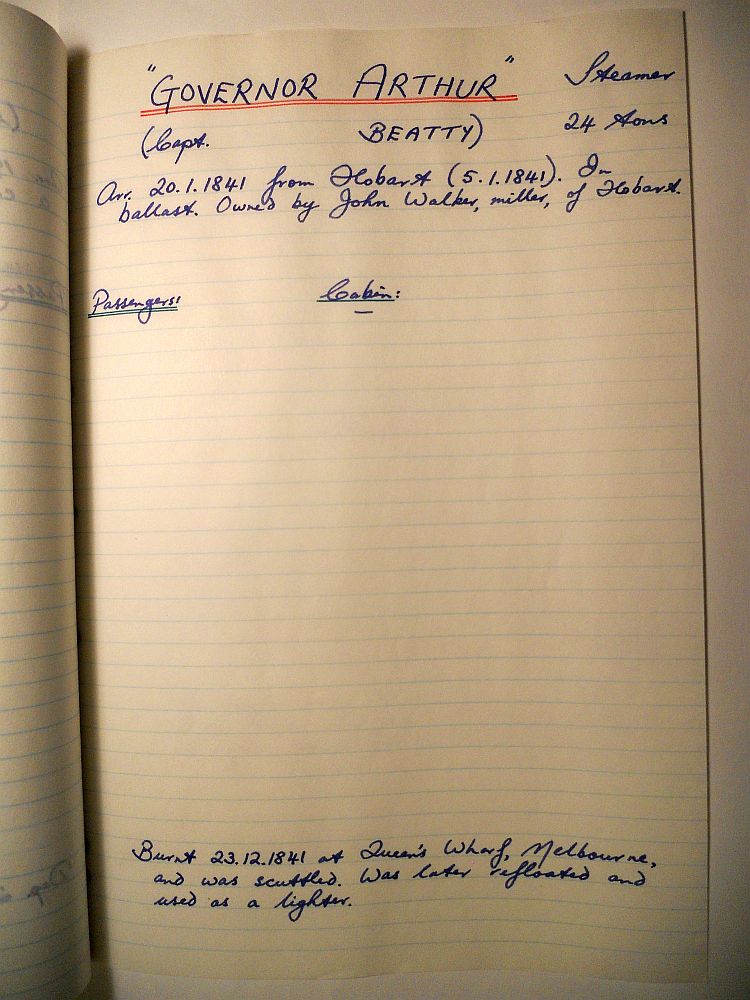 "GOVERNOR ARTHUR" Steamer
(Capt. BEATTY) 24 tons
Arr. 20.1.1841 from Hobart (5.1.1841). In
ballast. Owned by John Walker, miller, of Hobart.
Passengers: Cabin:
—
Burnt 23.12.1841 at Queen's Wharf, Melbourne,
and was scuttled. Was later refloated and
used as a lighter.